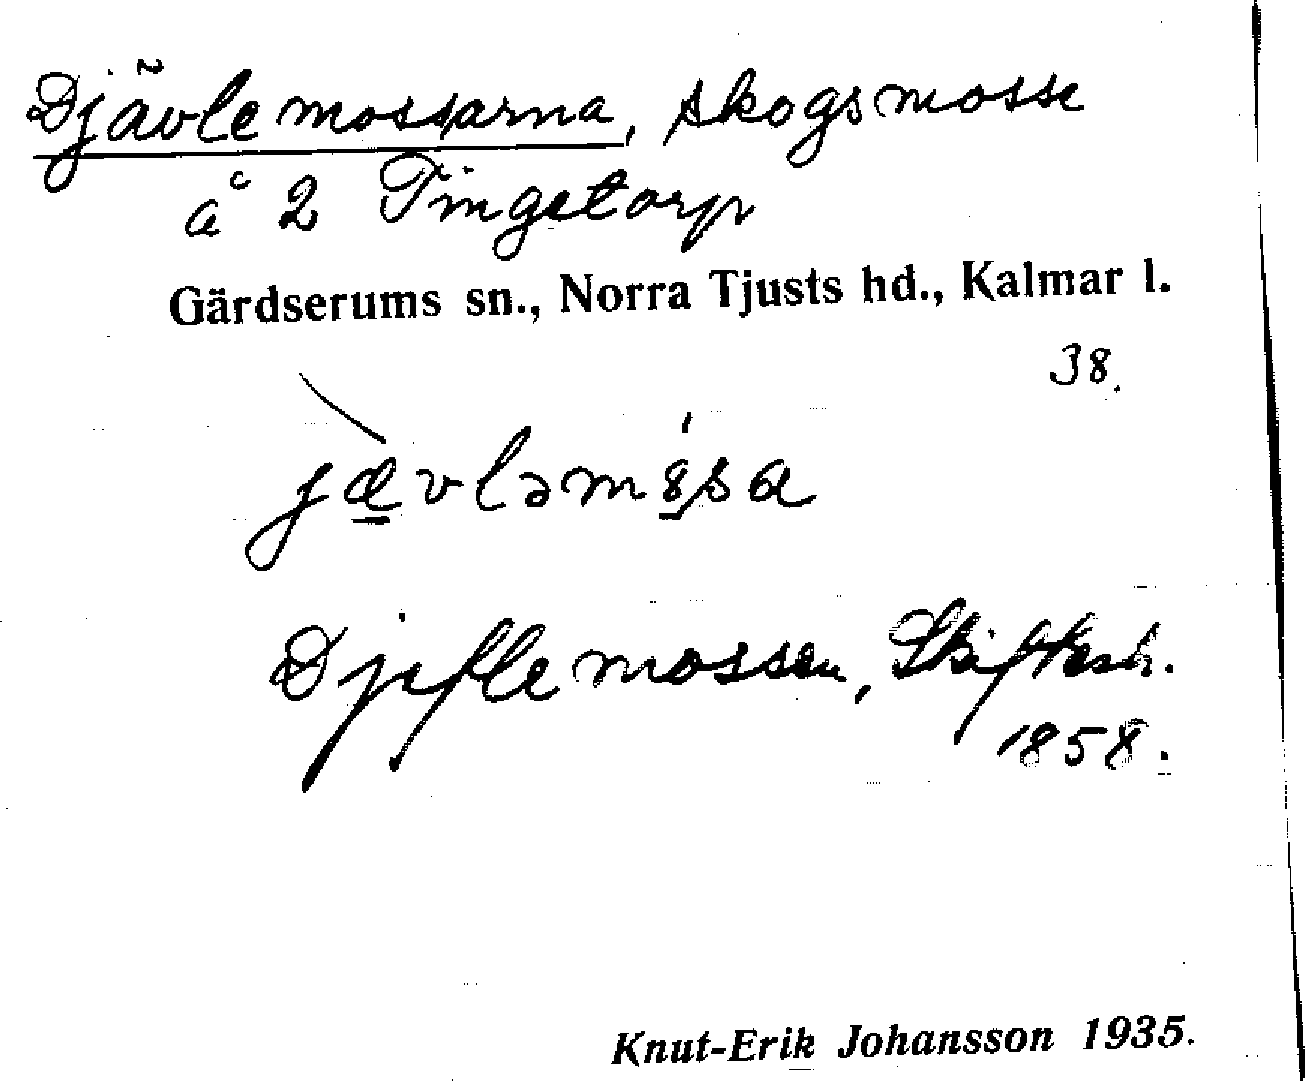 Djävlemossarna, skogsmosse
å 2 Tingetorp
Gärdserums sn., Norra Tjusts hd., Kalmar l.
38.
jævləmȣsa
Djeflemossen, Skiftesh.
1858.
Knut-Erik Johansson 1935.